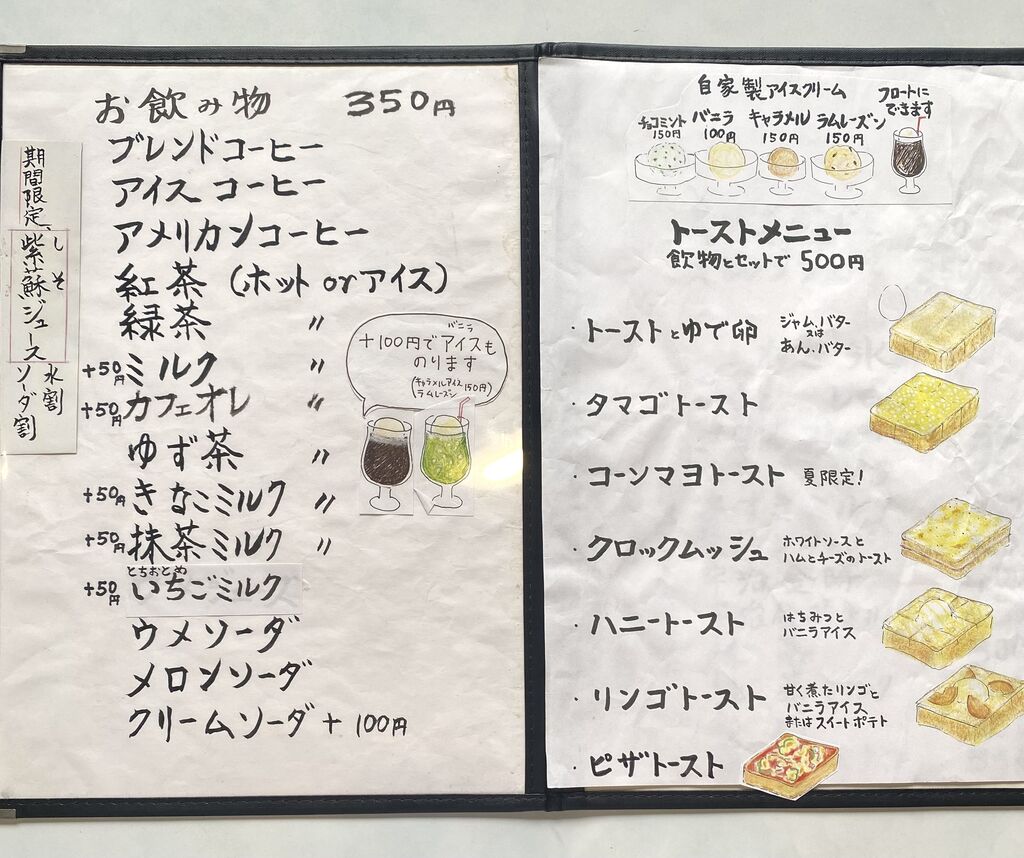 お飲み物 350円
ブレンドコーヒー
アイスコーヒー
アメリカンコーヒー
紅茶 (ホット or アイス)
緑茶 〃
+50円 ミルク 〃
+50円 カフェオレ 〃
ゆず茶 〃
+50円 きなこミルク 〃
+50円 抹茶ミルク 〃
とちおとめ
+50円 いちごミルク
ウメソーダ
メロンソーダ
クリームソーダ + 100円
期間限定、
しそ
紫蘇ジュース
水割
ソーダ割
バニラ
+100円でアイスも
のります
(キャラメルアイス
ラムレーズン 150円)
自家製アイスクリーム
フロートに
できます
チョコミント
150円
バニラ
100円
キャラメル
150円
ラムレーズン
150円
トーストメニュー
飲物とセットで 500円
・トーストとゆで卵
ジャム、バター
又は
あん、バター
・タマゴトースト
・コーンマヨトースト 夏限定!
・クロックムッシュ
ホワイトソースと
ハムとチーズのトースト
・ハニートースト
はちみつと
バニラアイス
・リンゴトースト
甘く煮たリンゴと
バニラアイス
またはスイートポテト
・ピザトースト